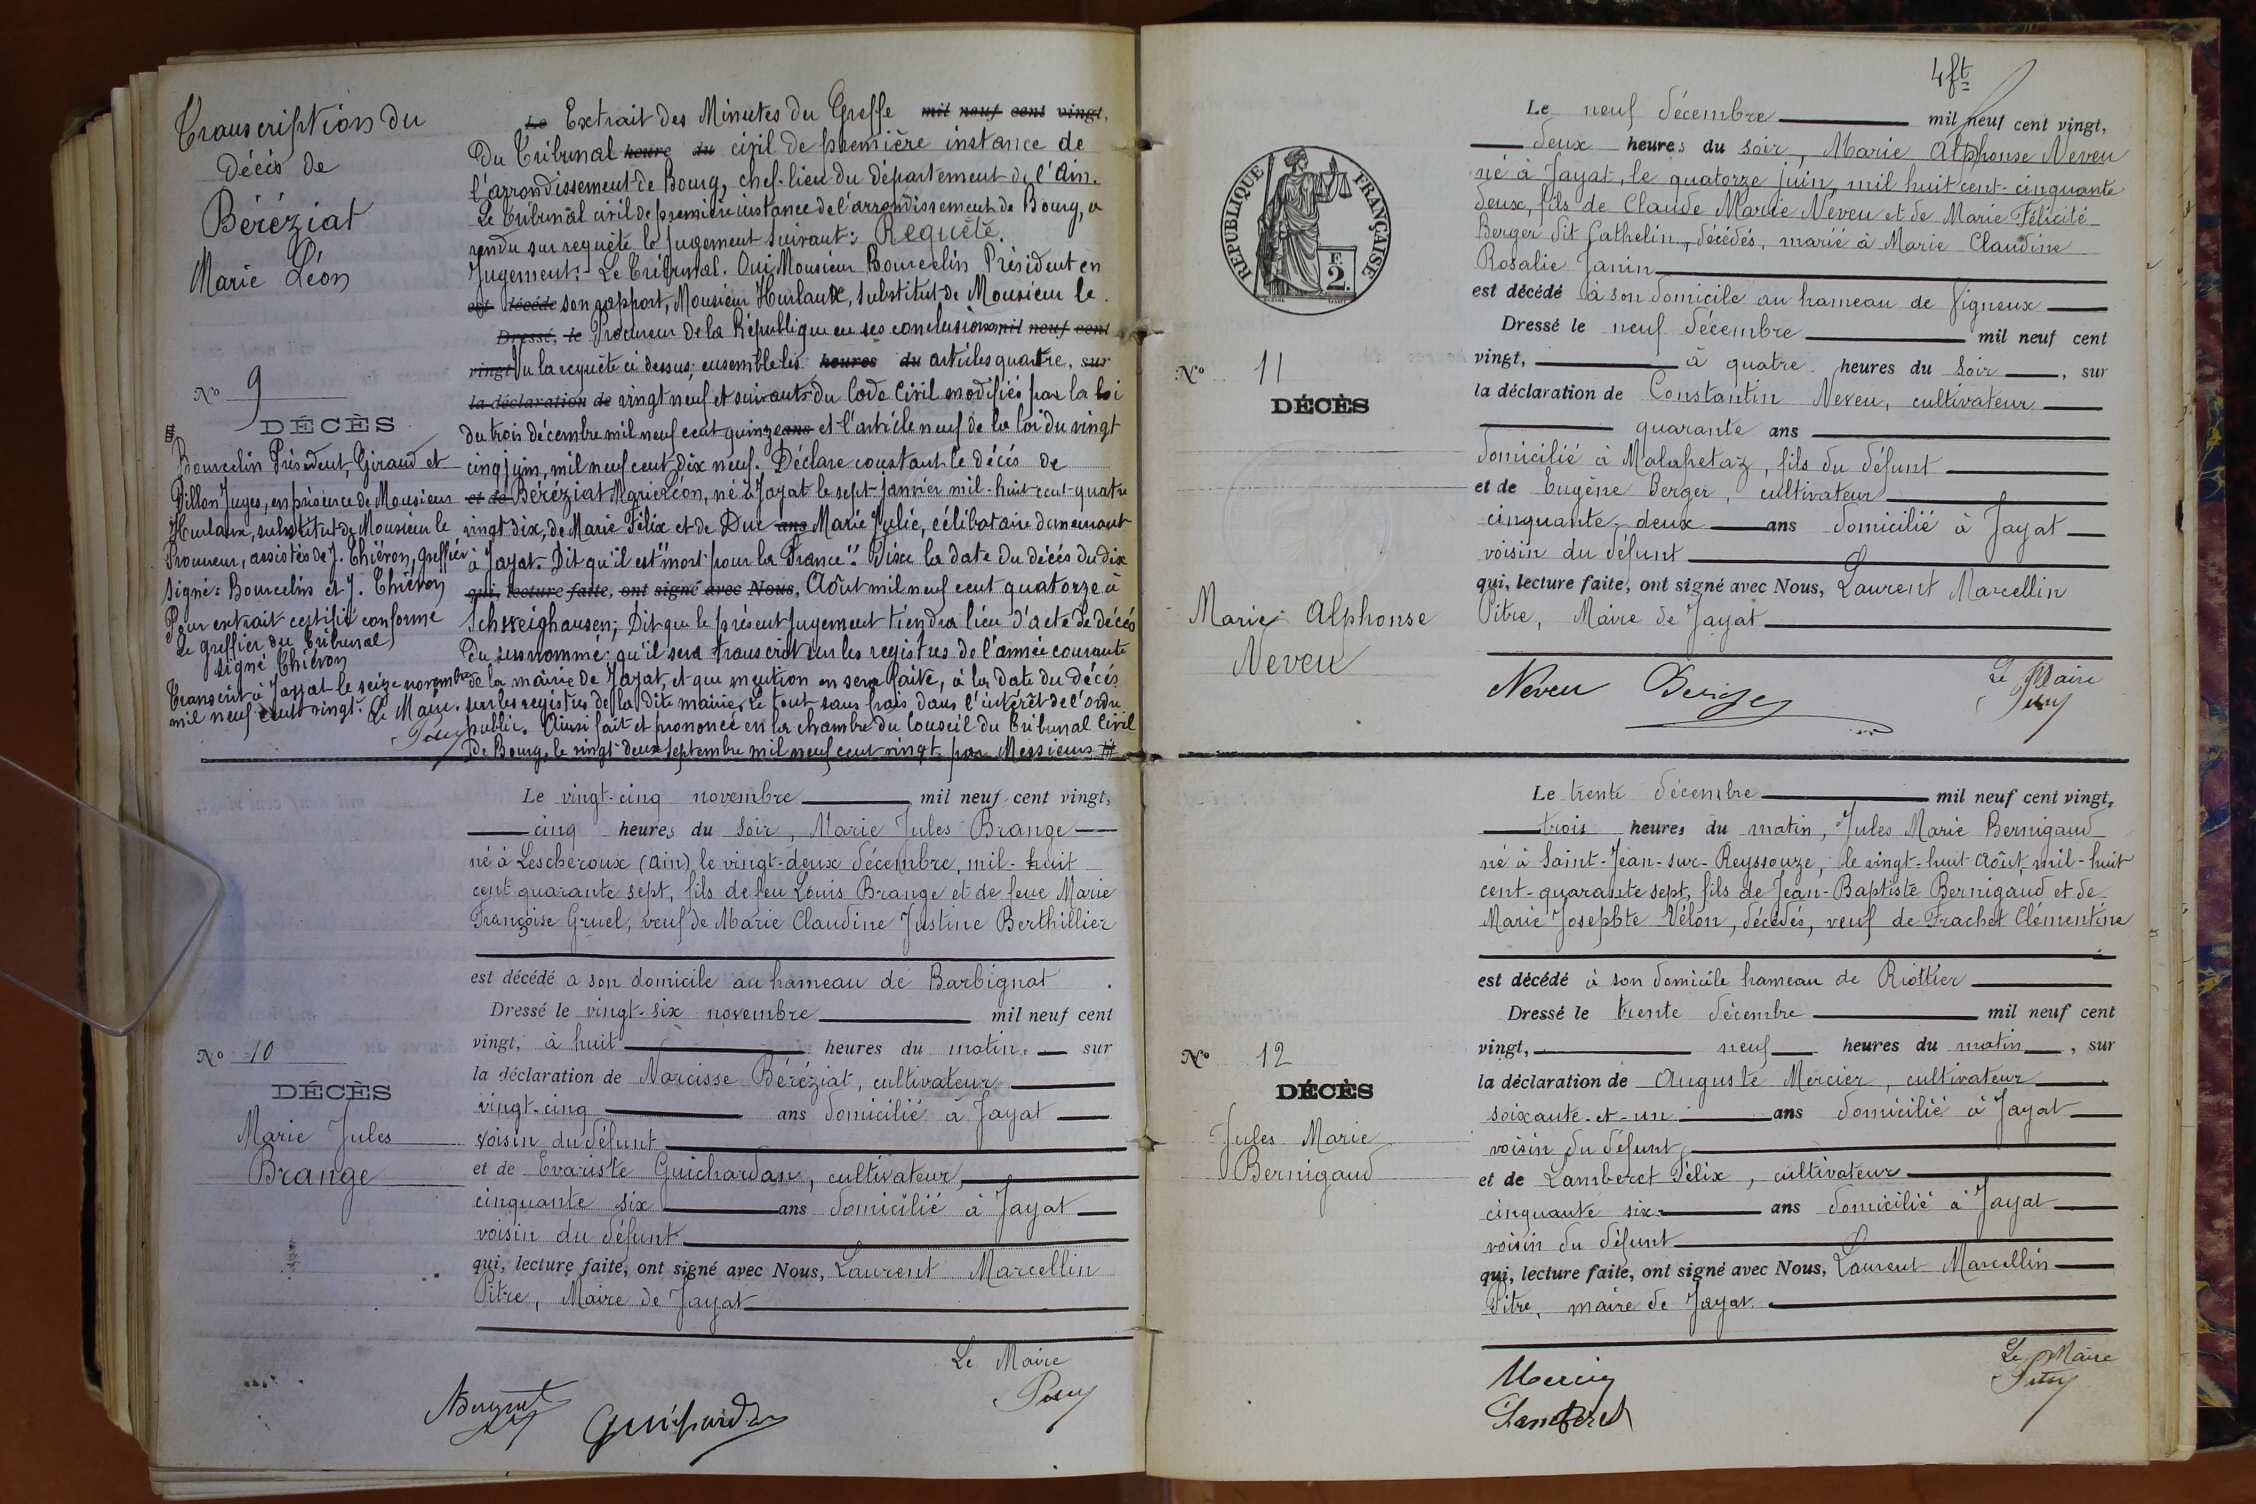 Transcription du
Décès de
Béréziat
Marie Léon
No 9
DÉCÈS
Bourcelin Président, Giraud et
Pillon Juges, en présence de Monsieur
Hurlaux, substitut de Monsieur le
Procureur, assistés de J. Thiéron, greffier
Signé: Bourcelin et J. Thiéron
Pour extrait certifié conforme
Le greffier du Tribunal
signé Thiéron
Transcrit à Jayat le seize novembre
mil neuf cent vingt. Le Maire.
Le Extrait des Minutes du Greffe mil neuf cent vingt,
Du Tribunal heure du civil de première instance de
l'arrondissement de Bourg, chef-lieu du département de l'Ain.
Le tribunal civil de première instance de l'arrondissement de Bourg, a
rendu sur requête le jugement suivant: Requête.
Jugement: - Le Tribunal. Oui Monsieur Bourcelin Président en
est décédé son rapport, Monsieur Hurlaux, substitut de Monsieur le
Dressé, le Procureur de la République en ses conclusions mil neuf cent
vingt Vu la requête ci dessus; ensemble les heures du articles quatre, sur
la déclaration de vingt neuf et suivants du Code Civil modifiés par la loi
du trois décembre mil neuf cent quinze ans et l'article neuf de la loi du vingt
cinq juin, mil neuf cent dix neuf. Déclare constant le décès de
et de Béréziat Marie Léon, né à Jayat le sept Janvier mil-huit-cent-quatre
vingt dix, de Marie Félix et de Duc ans Marie Julie, célibataire demeurant
à Jayat. Dit qu'il est "mort pour la France". Fixe la date du décès du dix
qui, lecture faite, ont signé avec Nous, Août mil neuf cent quatorze à
Schweighausen; Dit que le présent jugement tiendra lieu d'acte de décès
du susnommé: qu'il sera transcrit sur les registres de l'année courante
de la mairie de Jayat, et que mention en sera faite, à la date du décès
sur les registres de la dite mairie, Le tout sans frais dans l'intérêt de l'ordre
public. Ainsi fait et prononcé en la chambre du Conseil du Tribunal Civil
de Bourg, le vingt deux septembre mil neuf cent vingt par Messieurs
No 10
DÉCÈS
Marie Jules
Brange
Le vingt-cinq novembre mil neuf cent vingt,
cinq heures du soir, Marie Jules Brange
né à Lescheroux (Ain) le vingt-deux décembre, mil-huit
cent quarante sept, fils de feu Louis Brange et de feue Marie
Françoise Gruel, veuf de Marie Claudine Justine Berthillier
est décédé a son domicile au hameau de Barbignat
Dressé le vingt-six novembre mil neuf cent
vingt, à huit heures du matin, sur
la déclaration de Narcisse Béréziat, cultivateur
vingt-cinq ans domicilié à Jayat
voisin du défunt
et de Evariste Guichardan, cultivateur,
cinquante six ans domicilié à Jayat
voisin du défunt
qui, lecture faite, ont signé avec Nous, Laurent Marcellin
Pitre, Maire de Jayat
Le Maire
Guichardan
4 ft
RÉPUBLIQUE FRANÇAISE
F.
2.
No 11
DÉCÈS
Marie Alphonse
Neveu
Le neuf décembre mil neuf cent vingt,
deux heures du soir, Marie Alphonse Neveu
né à Jayat, le quatorze juin, mil huit cent-cinquante
deux, fils de Claude Marie Neveu et de Marie Félicité
Berger dit Cathelin, décédés, marié à Marie Claudine
Rosalie Janin
est décédé à son domicile au hameau de Figneux
Dressé le neuf décembre mil neuf cent
vingt, à quatre heures du soir, sur
la déclaration de Constantin Neveu, cultivateur
quarante ans
domicilié à Malafretaz, fils du défunt
et de Eugène Berger, cultivateur
cinquante-deux ans domicilié à Jayat
voisin du défunt
qui, lecture faite, ont signé avec Nous, Laurent Marcellin
Pitre, Maire de Jayat
Neveu Berger
Le Maire
No 12
DÉCÈS
Jules Marie
Bernigaud
Le trente décembre mil neuf cent vingt,
trois heures du matin, Jules Marie Bernigaud
né à Saint-Jean-sur-Reyssouze, le vingt-huit Août, mil-huit
cent-quarante sept, fils de Jean-Baptiste Bernigaud et de
Marie Josephte Vélon, décédés, veuf de Frachet Clémentine
est décédé à son domicile hameau de Riottier
Dressé le trente décembre mil neuf cent
vingt, neuf heures du matin, sur
la déclaration de Auguste Mercier, cultivateur
soixante-et-un ans domicilié à Jayat
voisin du défunt,
et de Lamberet Félix, cultivateur
cinquante six ans domicilié à Jayat
voisin du défunt
qui, lecture faite, ont signé avec Nous, Laurent Marcellin
Pitre, maire de Jayat.
Le Maire
Mercier
Lamberet